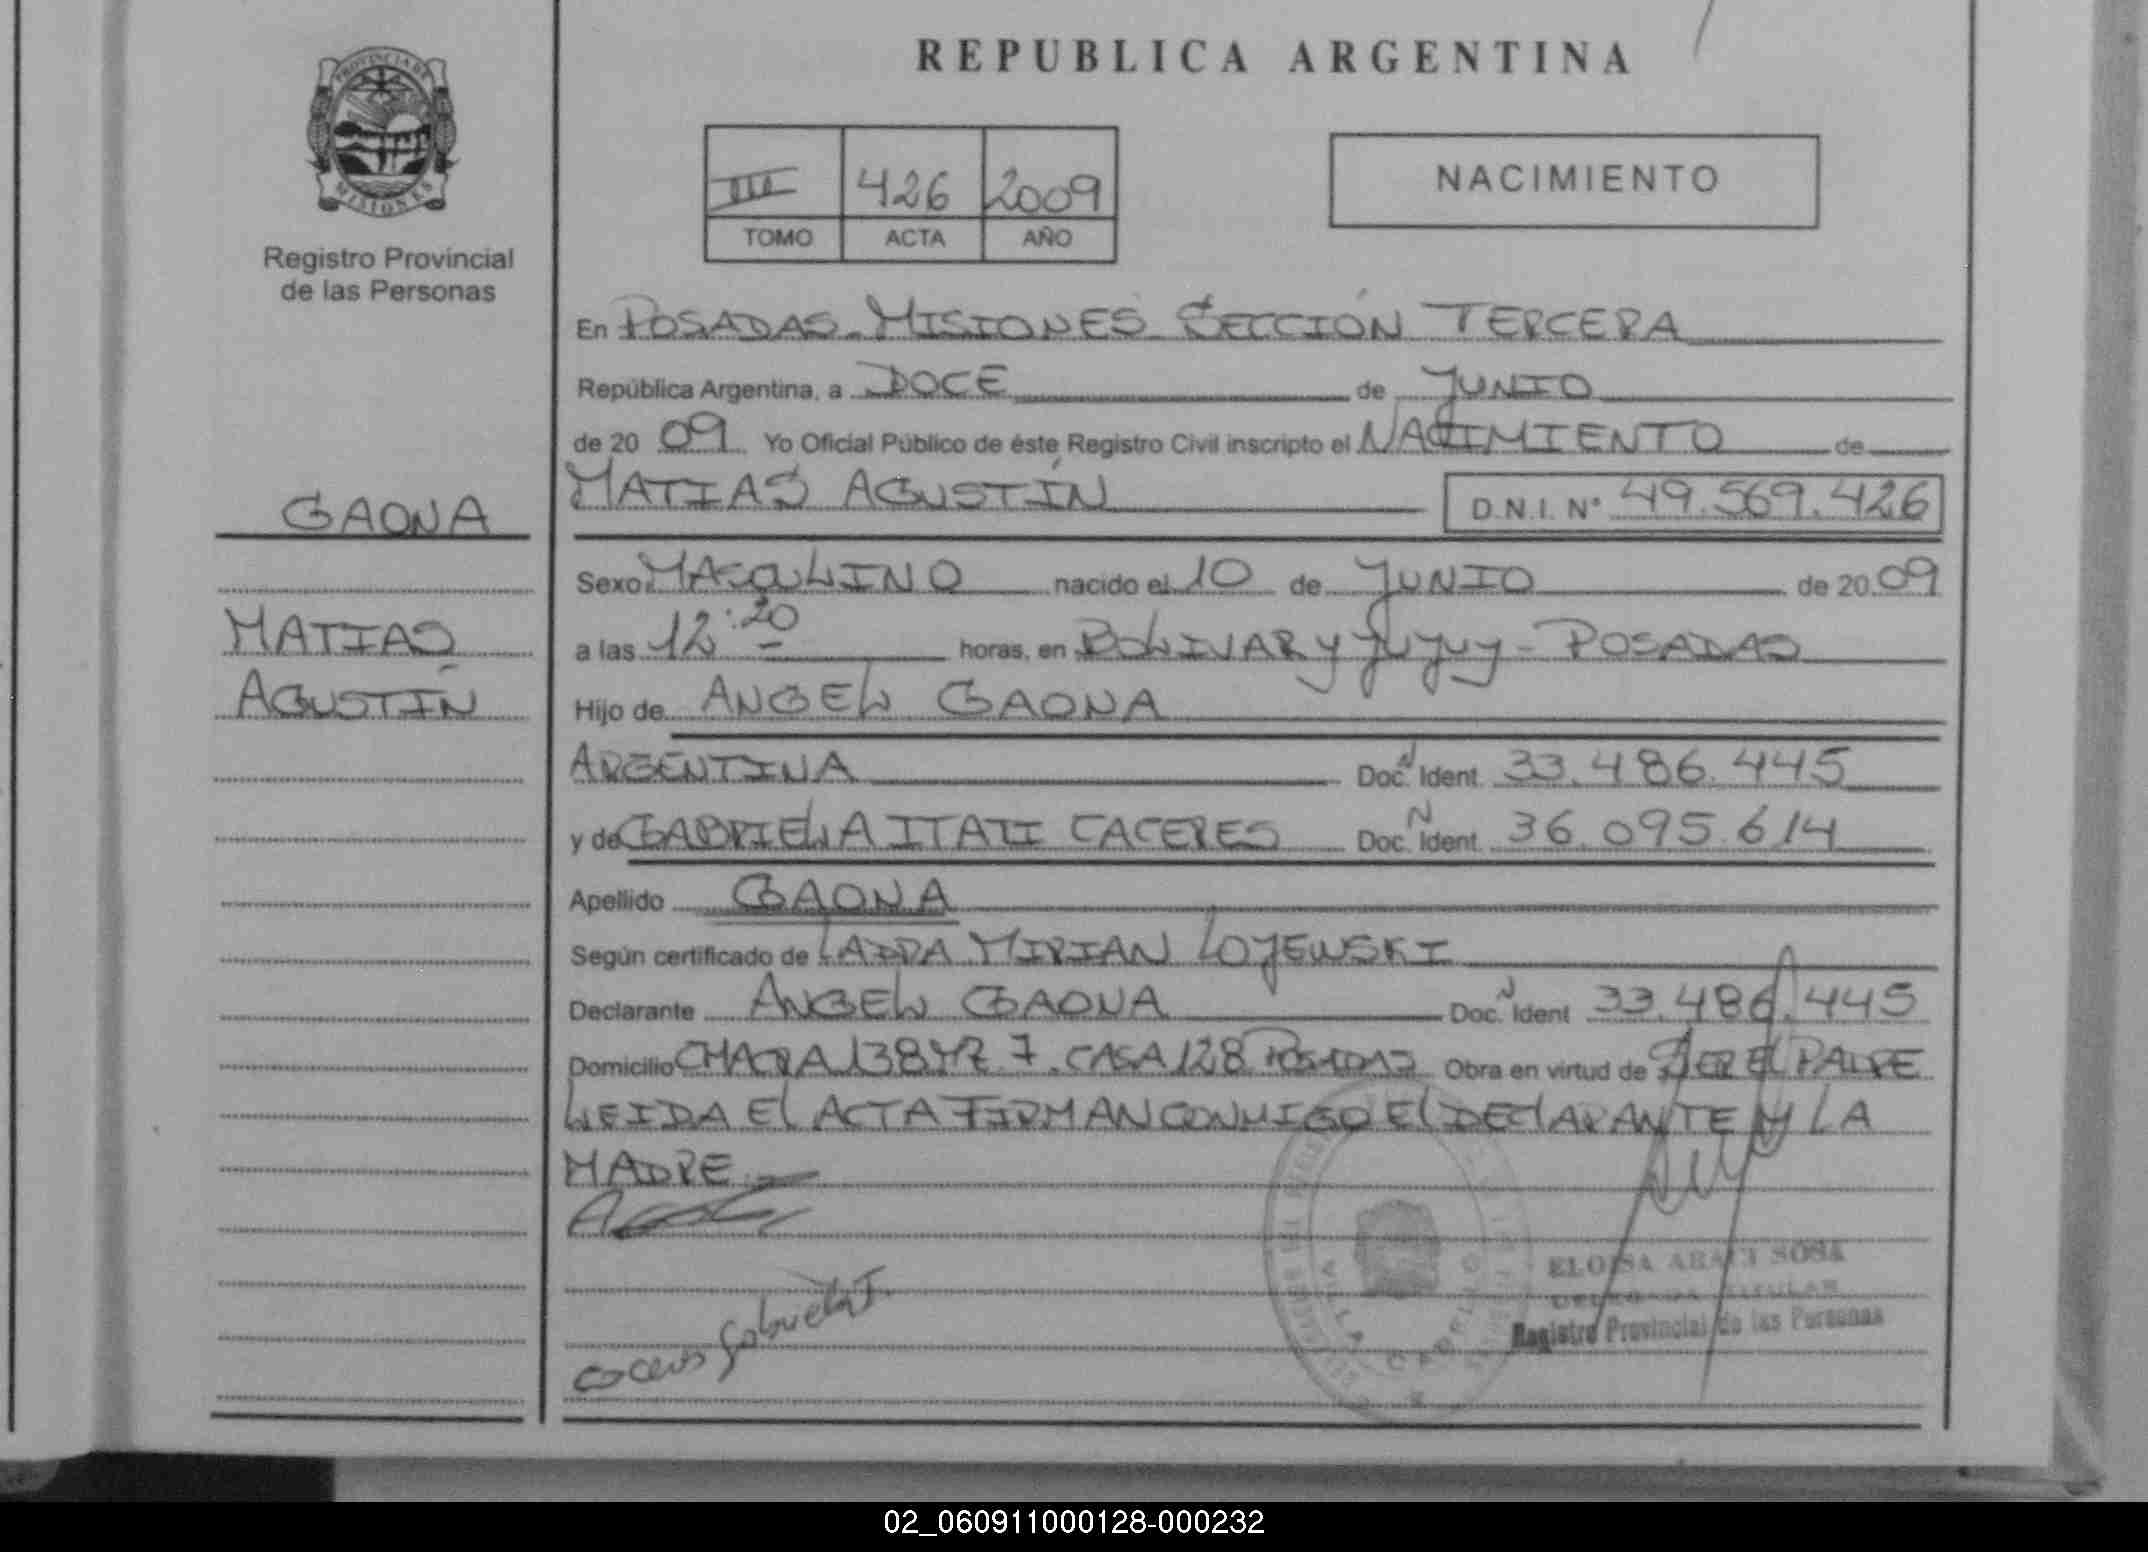 REPUBLICA ARGENTINA
PROVINCIA DE
MISIONES
Registro Provincial
de las Personas
III 426 2009
TOMO ACTA AÑO
NACIMIENTO
En POSADAS - MISIONES SECCIÓN TERCERA
República Argentina, a DOCE de JUNIO
de 2009 Yo Oficial Público de éste Registro Civil inscripto el NACIMIENTO de
GAONA
MATIAS AGUSTÍN D.N.I. N° 49.569.426
Sexo MASCULINO nacido el 10 de JUNIO de 2009
MATIAS
a las 12:20 horas, en BOLIVAR y Jujuy - POSADAS
AGUSTÍN
Hijo de ANGEL GAONA
ARGENTINA Doc. N Ident. 33.486.445
y de GABRIELA ITATI CACERES Doc. N Ident. 36.095.614
Apellido GAONA
Según certificado de LADRA MIRIAN LOJEWSKI
Declarante ANGEL GAONA Doc. N Ident 33.486.445
Domicilio CHACRA 138 MZ 7. CASA 128 POSADAS Obra en virtud de SER EL PADRE
LEIDA El ACTA FIRMAN CONMIGO El DEClARANTE Y LA
MADRE.-
ELOISA ARACI SOSA
DELEGADA TITULAR
Registro Provincial de las Personas
VILLA CABELLO
caceres gabriela I.
02_060911000128-000232